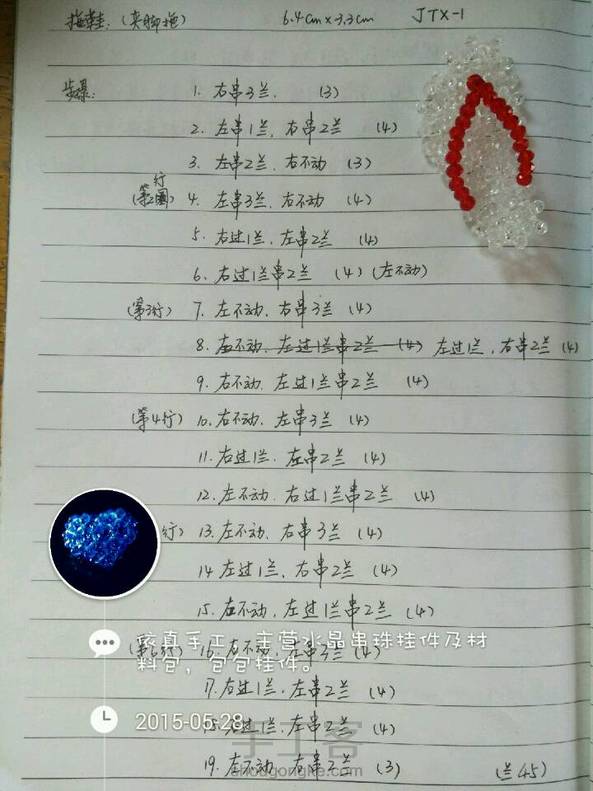 拖鞋:(夹脚拖) 6.4cm×3.3cm JTX-1
步骤: 1. 右串3兰. (3)
2. 左串1兰, 右串2兰 (4)
3. 左串2兰, 右不动 (3)
(第2圈行) 4. 左串3兰, 右不动 (4)
5. 右过1兰, 左串2兰 (4)
6. 右过1兰串2兰 (4) (左不动)
(第3行) 7. 左不动, 右串3兰 (4)
8. 右不动, 左过1兰串2兰 (4) 左过1兰, 右串2兰 (4)
9. 右不动, 左过1兰串2兰 (4)
(第4行) 10. 右不动, 左串3兰 (4)
11. 右过1兰, 左串2兰 (4)
12. 左不动, 右过1兰串2兰 (4)
行) 13. 左不动, 右串3兰 (4)
14. 左过1兰, 右串2兰 (4)
15. 右不动, 左过1兰串2兰 (4)
(第6行) 16. 右不动, 左串3兰 (4)
较真手工,主营水晶串珠挂件及材
料包,包包挂件。
17. 右过1兰, 左串2兰 (4)
2015-05-28
18. 右过1兰, 左串2兰 (4)
手工客
shougongke.com
19. 左不动, 右串2兰 (3) (兰45)